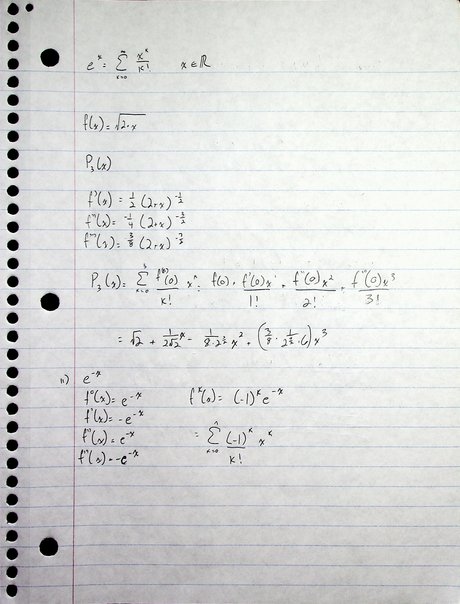 e^x = ∑_{k=0}^{∞} x^k/k! x ∈ ℝ
f(x) = √(2+x)
P₃(x)
f'(x) = 1/2 (2+x)^{-1/2}
f''(x) = -1/4 (2+x)^{-3/2}
f'''(x) = 3/8 (2+x)^{-5/2}
P₃(x) = ∑_{k=0}^{3} f^{(k)}(0)/k! x^k = f(0) + f'(0)x/1! + f''(0)x²/2! + f'''(0)x³/3!
= √2 + 1/(2√2) x - 1/(8·2^{3/2}) x² + (3/8 · 1/(2^{5/2}·6)) x³
11) e^{-x}
f⁰(x) = e^{-x} f^k(x) = (-1)^k e^{-x}
f'(x) = -e^{-x}
f''(x) = e^{-x} = ∑_{k=0}^{n} (-1)^k/k! x^k
f'''(x) = -e^{-x}